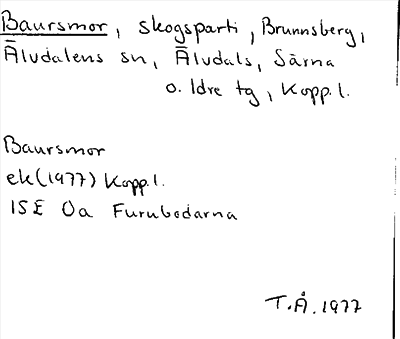 Baursmor, skogsparti, Brunnsberg,
Älvdalens sn, Älvdals, Särna
o. Idre tg, Kopp.l.
Baursmor
ek(1977) Kopp.l.
15E 0a Furubodarna
T.Å. 1977